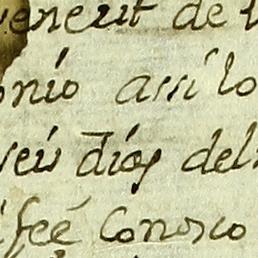 venerit de l
onio assi lo
seis dias del
feé Conosco